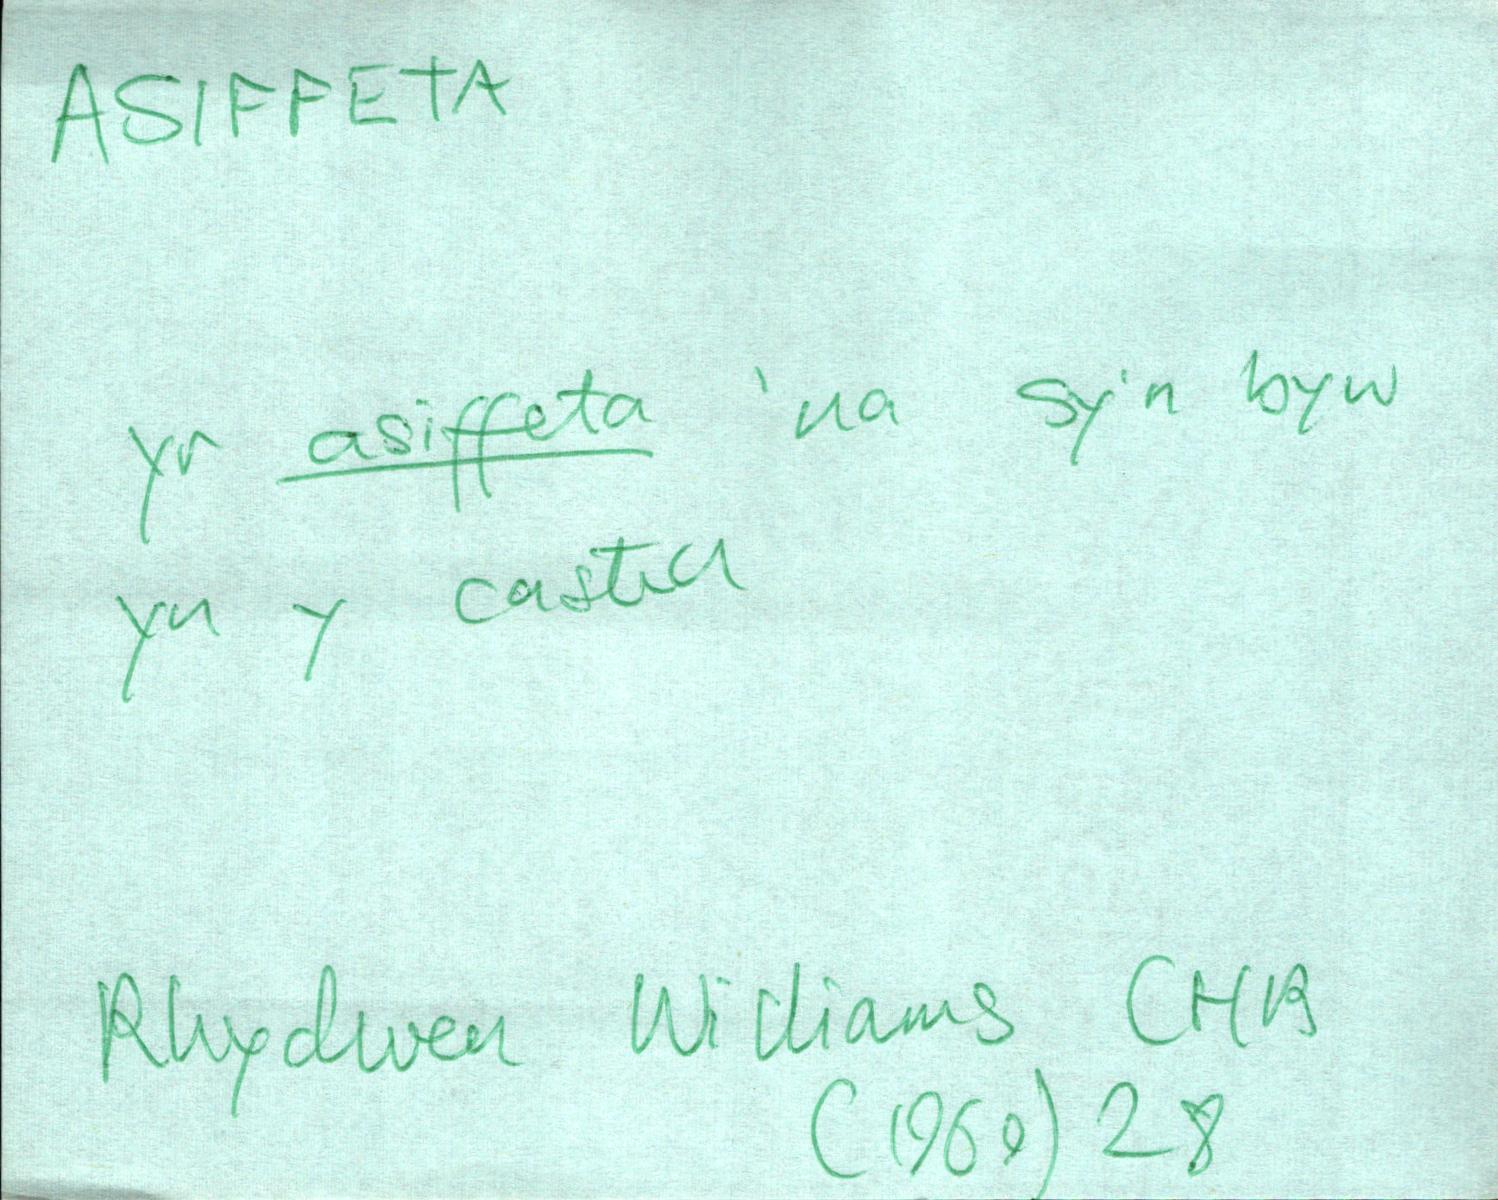 ASIFFETA
yr asiffeta 'na sy'n byw
yn y castell
Rhydwen Williams CHR
(1960) 28